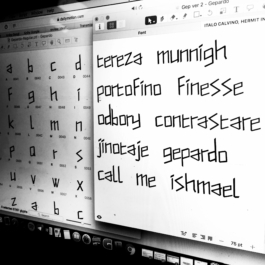 Gep ver 2 - Gepardo
Font
ITALO CALVINO, HERMIT
tereza munnigh
portofino finesse
odbory contrastare
jinotaje gepardo
call me ishmael
a b c d
f g h i
k l m n
p q r s
u v w x
z a b c